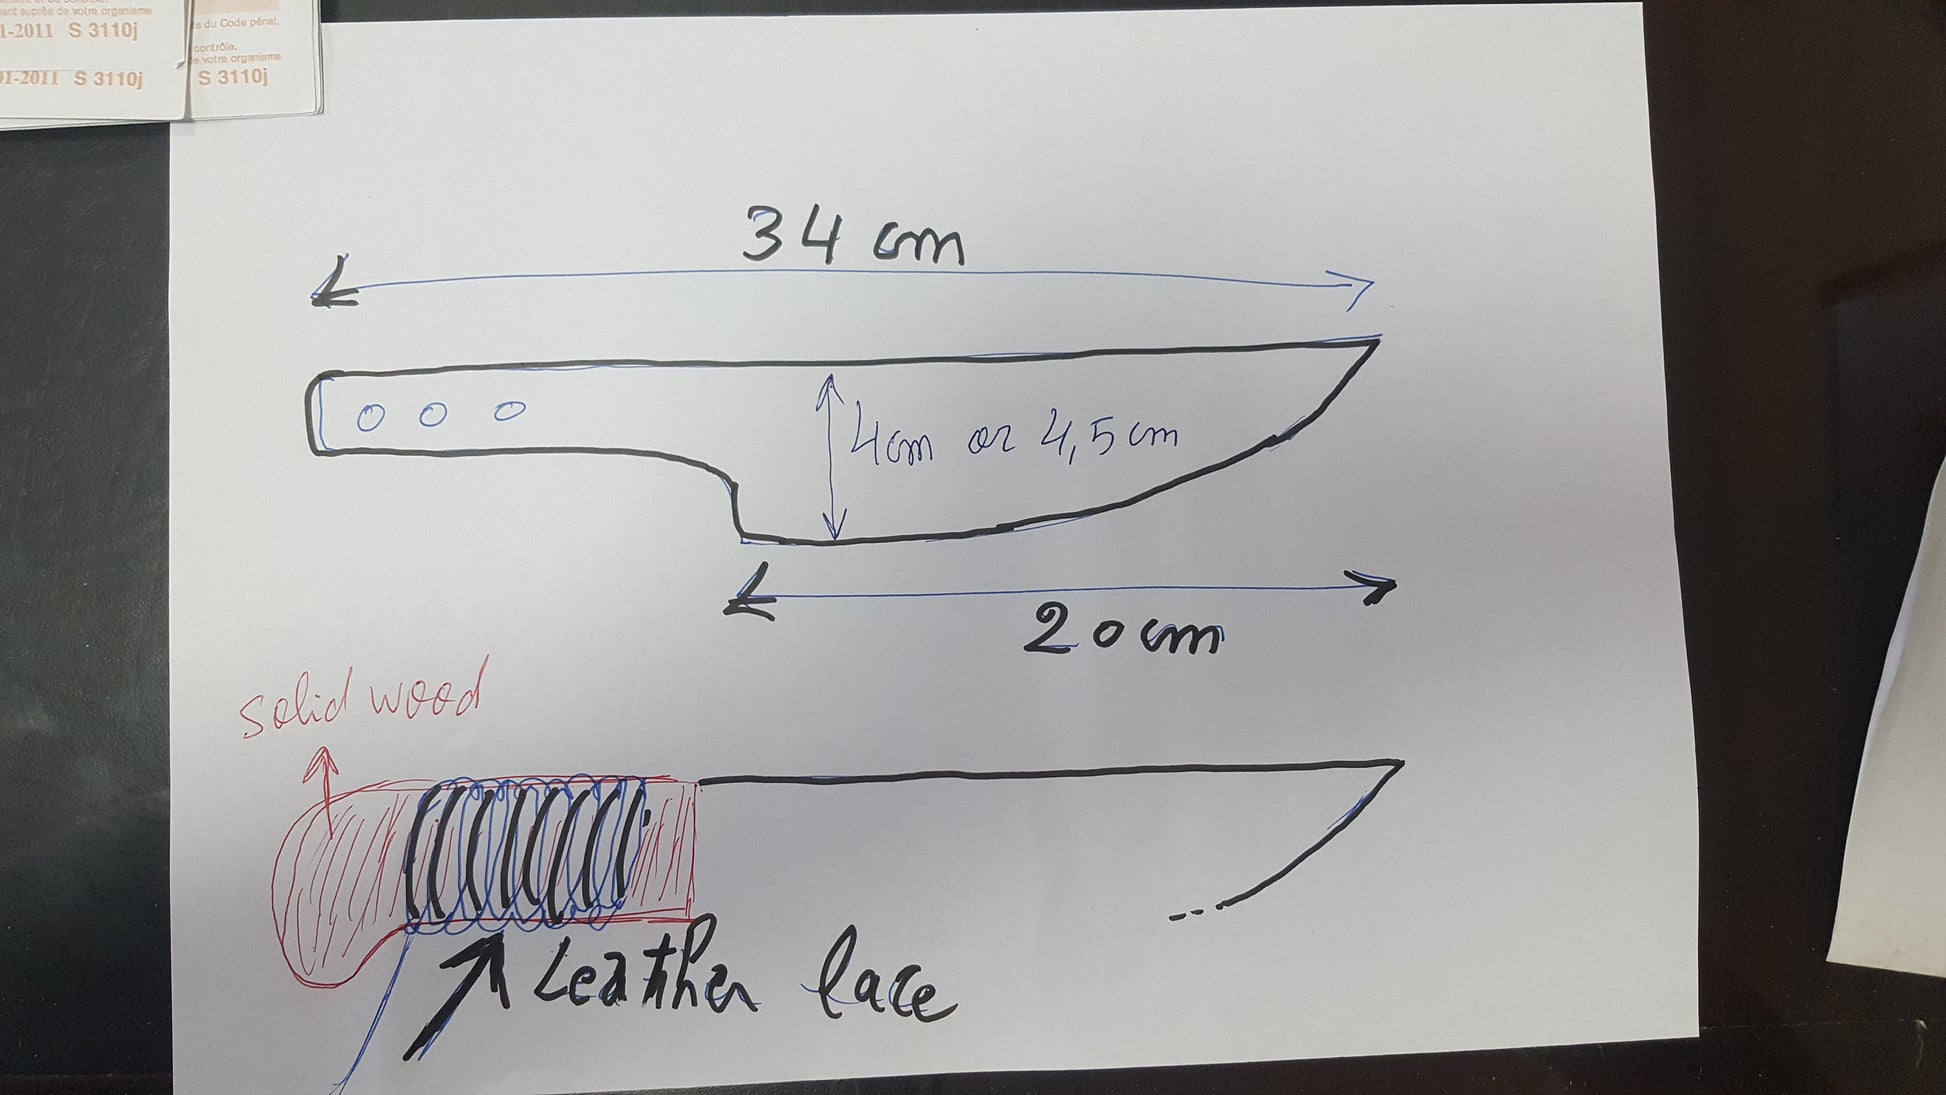 sant auprès de votre organisme
1-2011 S 3110j
01-2011 S 3110j
s du Code pénal,
contrôle.
votre organisme
S 3110j
34 cm
4cm or 4,5cm
20cm
solid wood
Leather lace